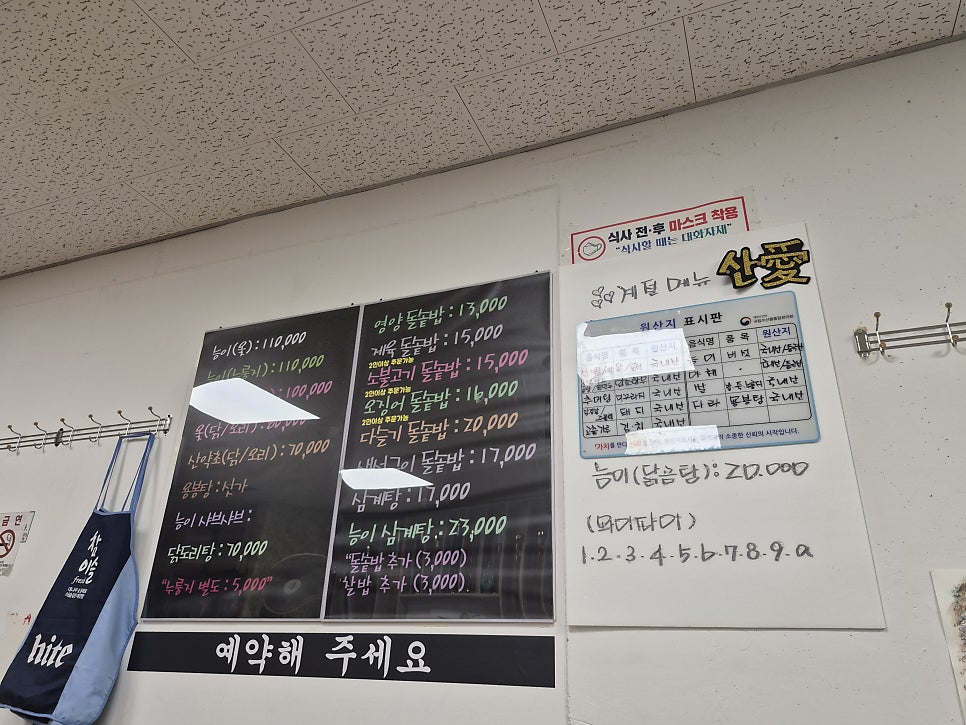 능이(옻) : 110,000
능이(누룽지) : 110,000
: 100,000
옻(닭/오리) :
산약초(닭/오리) : 70,000
용봉탕 : 싯가
능이 샤브샤브 :
닭도리탕 : 70,000
"누룽지 별도 : 5,000"
영양 돌솥밥 : 13,000
제육 돌솥밥 : 15,000
2인이상 주문가능
소불고기 돌솥밥 : 15,000
2인이상 주문가능
오징어 돌솥밥 : 16,000
2인이상 주문가능
다슬기 돌솥밥 : 20,000
생선구이 돌솥밥 : 17,000
삼계탕 : 17,000
능이 삼계탕 : 23,000
"돌솥밥 추가 (3,000)
찰밥 추가 (3,000)
예약해 주세요
식사 전·후 마스크 착용
"식사할 때는 대화자제"
산愛
계절 메뉴
원산지 표시판
음식명 품목 원산지 음식명 품목 원산지
국내산
국내산
국내산 국내산
돼지 국내산
김치 국내산
능이(닭곰탕) : 20.000
(와이파이)
1.2.3.4.5.6.7.8.9.a
금연
참이슬
fresh
hite